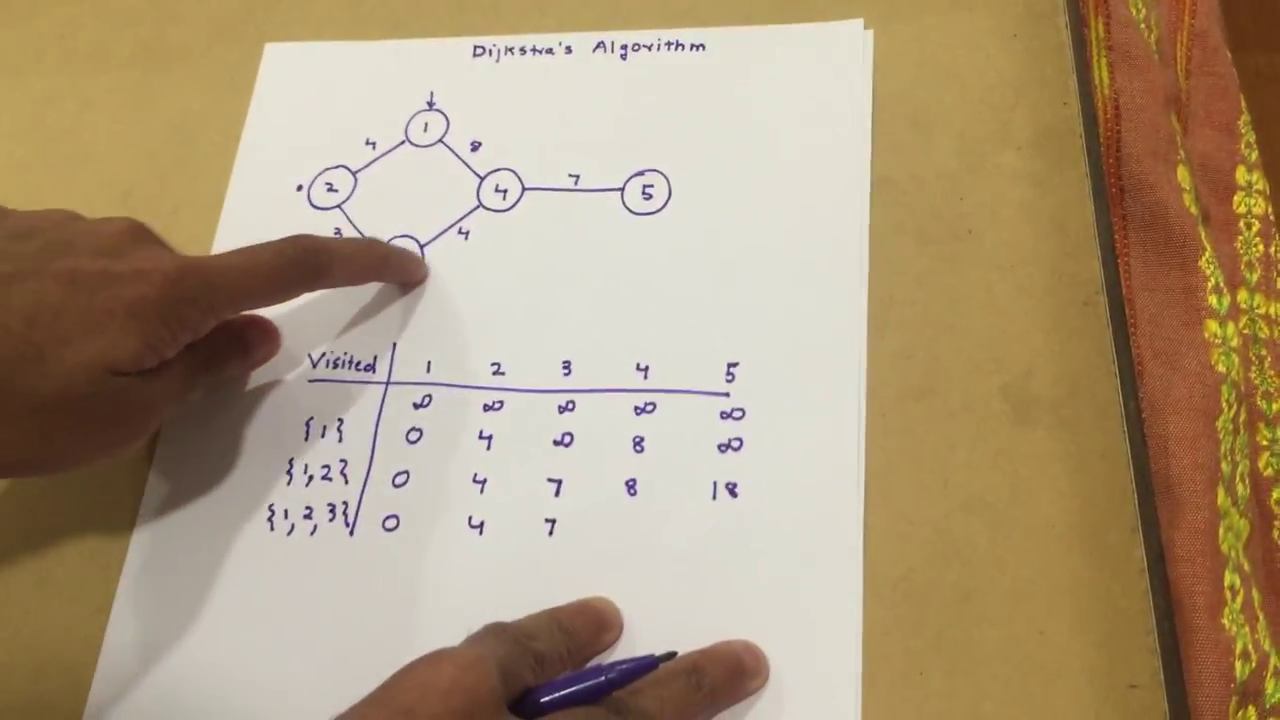 Dijkstra's Algorithm
1
4 8
2 4 7 5
3 4
Visited 1 2 3 4 5
∞ ∞ ∞ ∞ ∞
{1} 0 4 ∞ 8 ∞
{1,2} 0 4 7 8 18
{1,2,3} 0 4 7